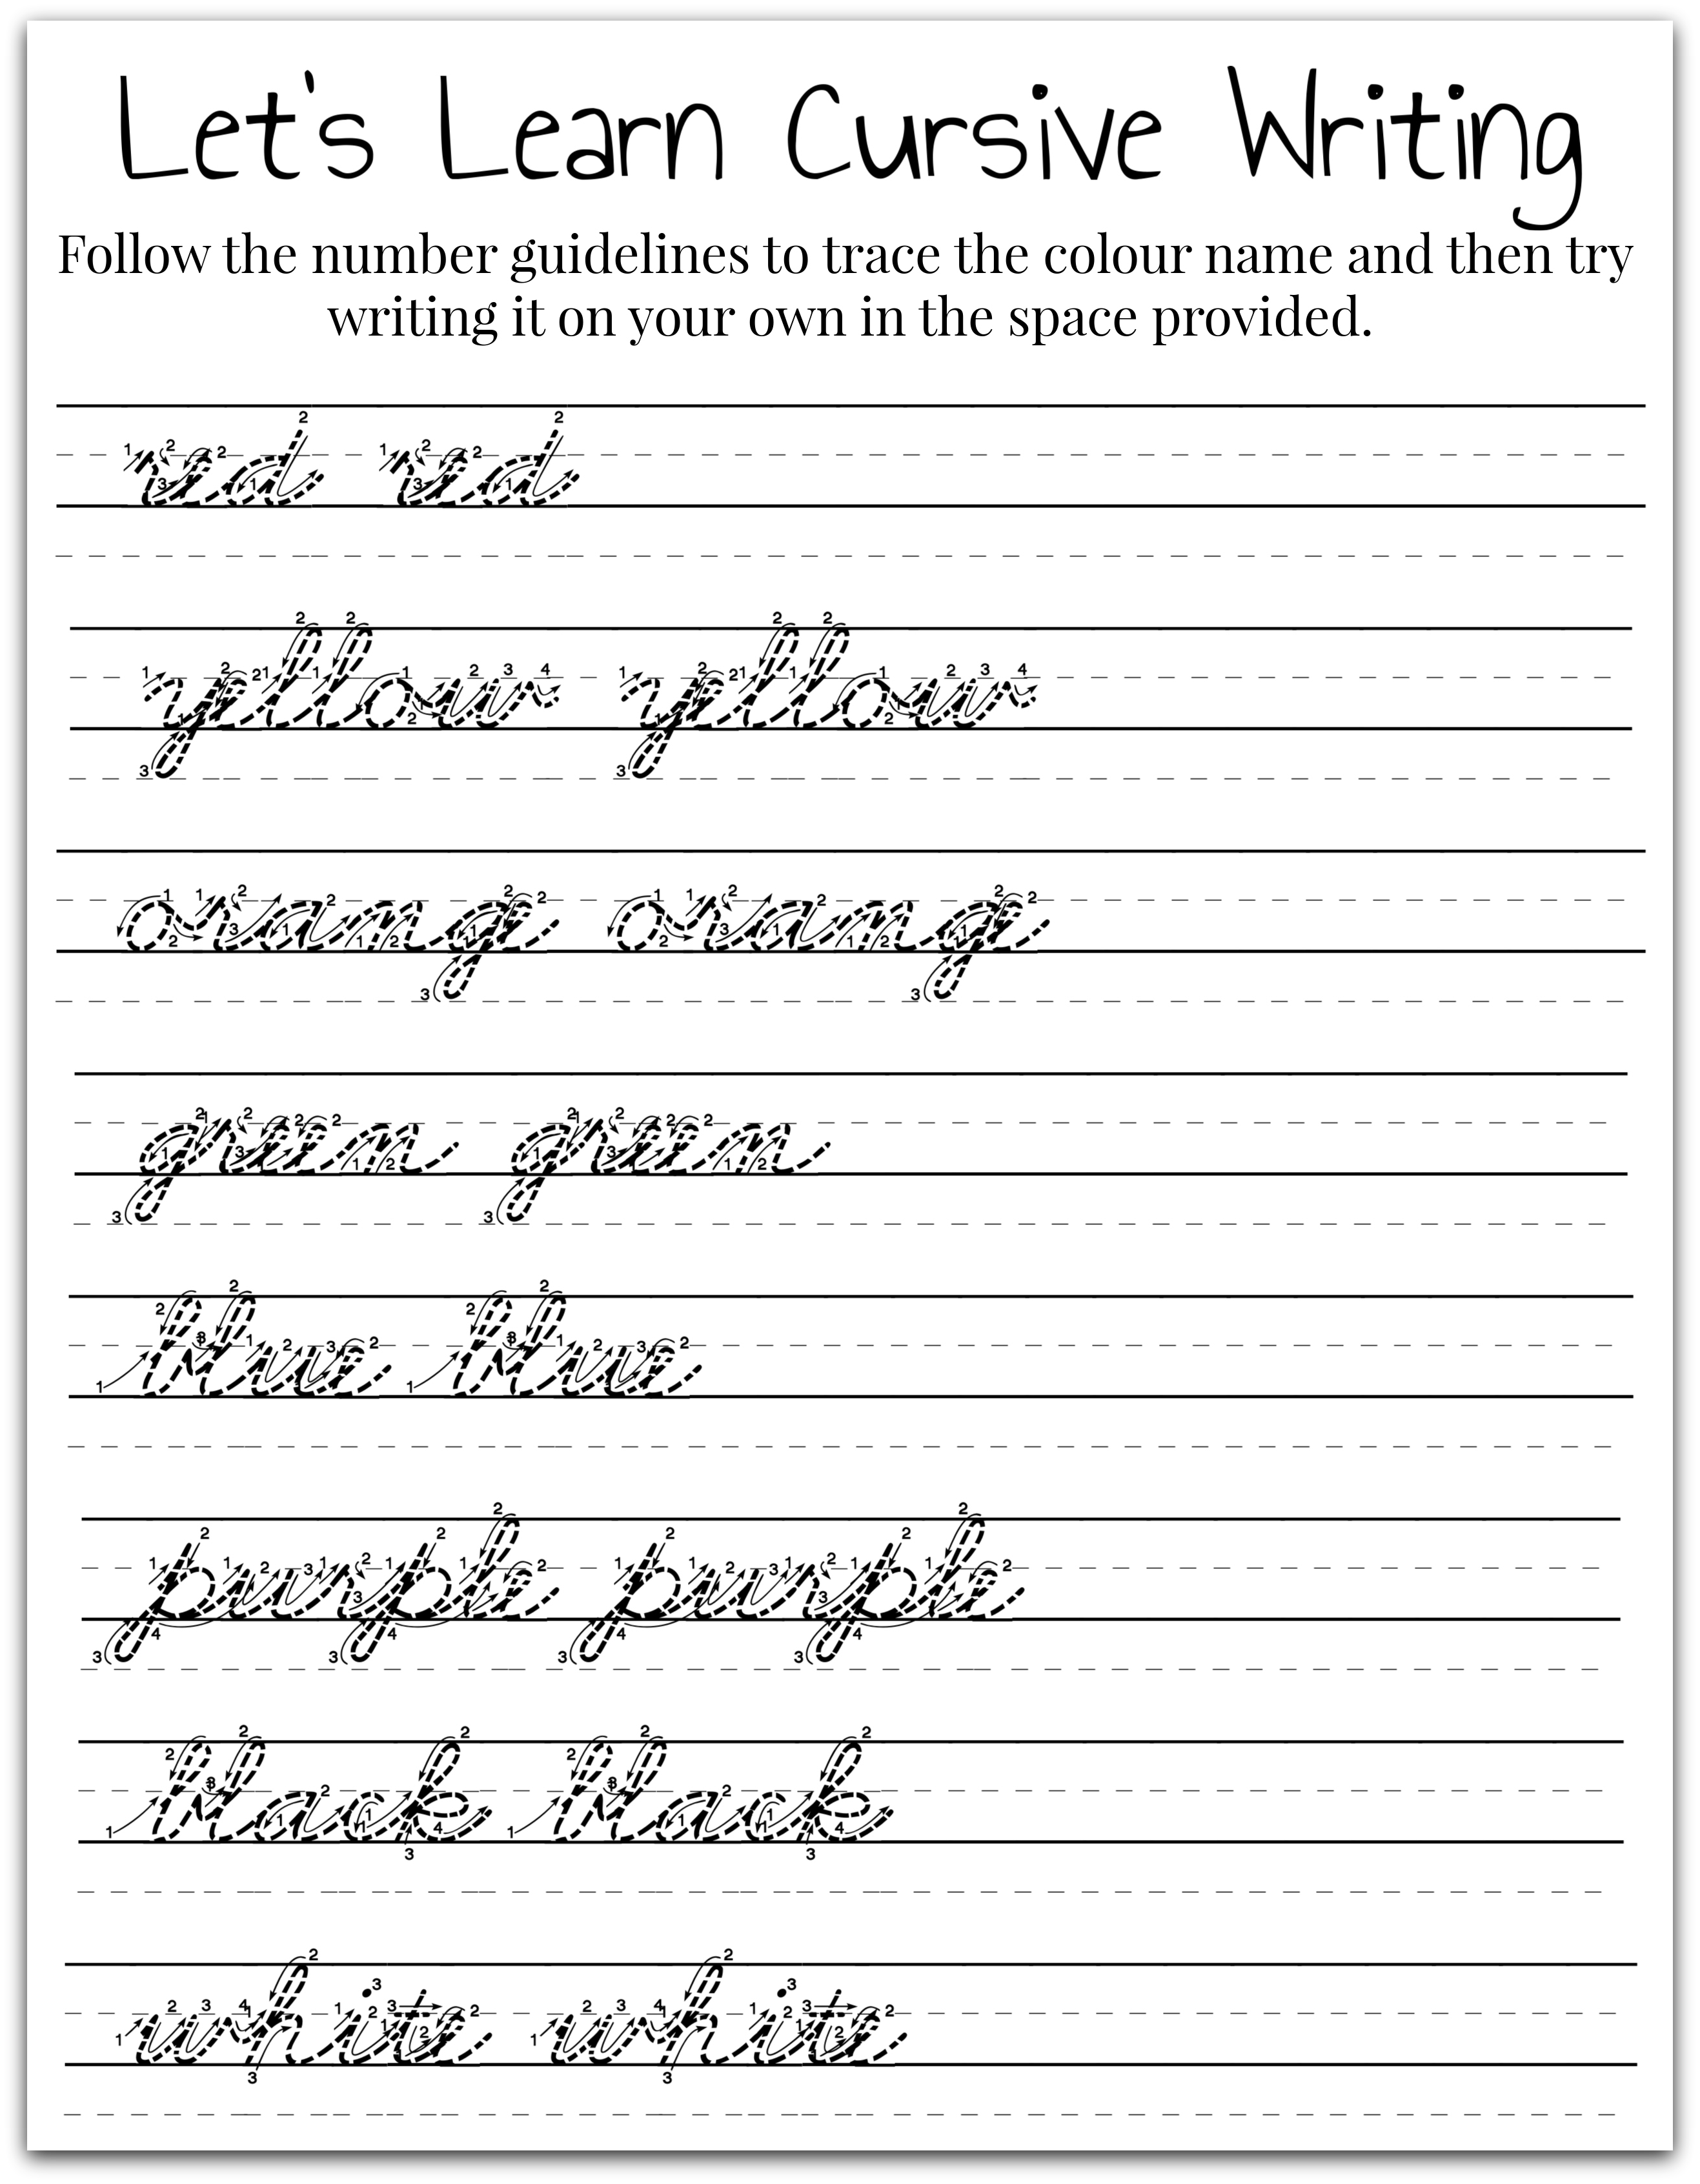 Let's Learn Cursive Writing
Follow the number guidelines to trace the colour name and then try
writing it on your own in the space provided.
red red
yellow yellow
orange orange
green green
blue blue
purple purple
black black
white white